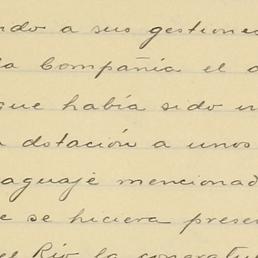 ndo a sus gestiones
la Compañía el a
que había sido in
a dotación a unos
aguaje mencionad
e se hiciera prese
el Río la congratu